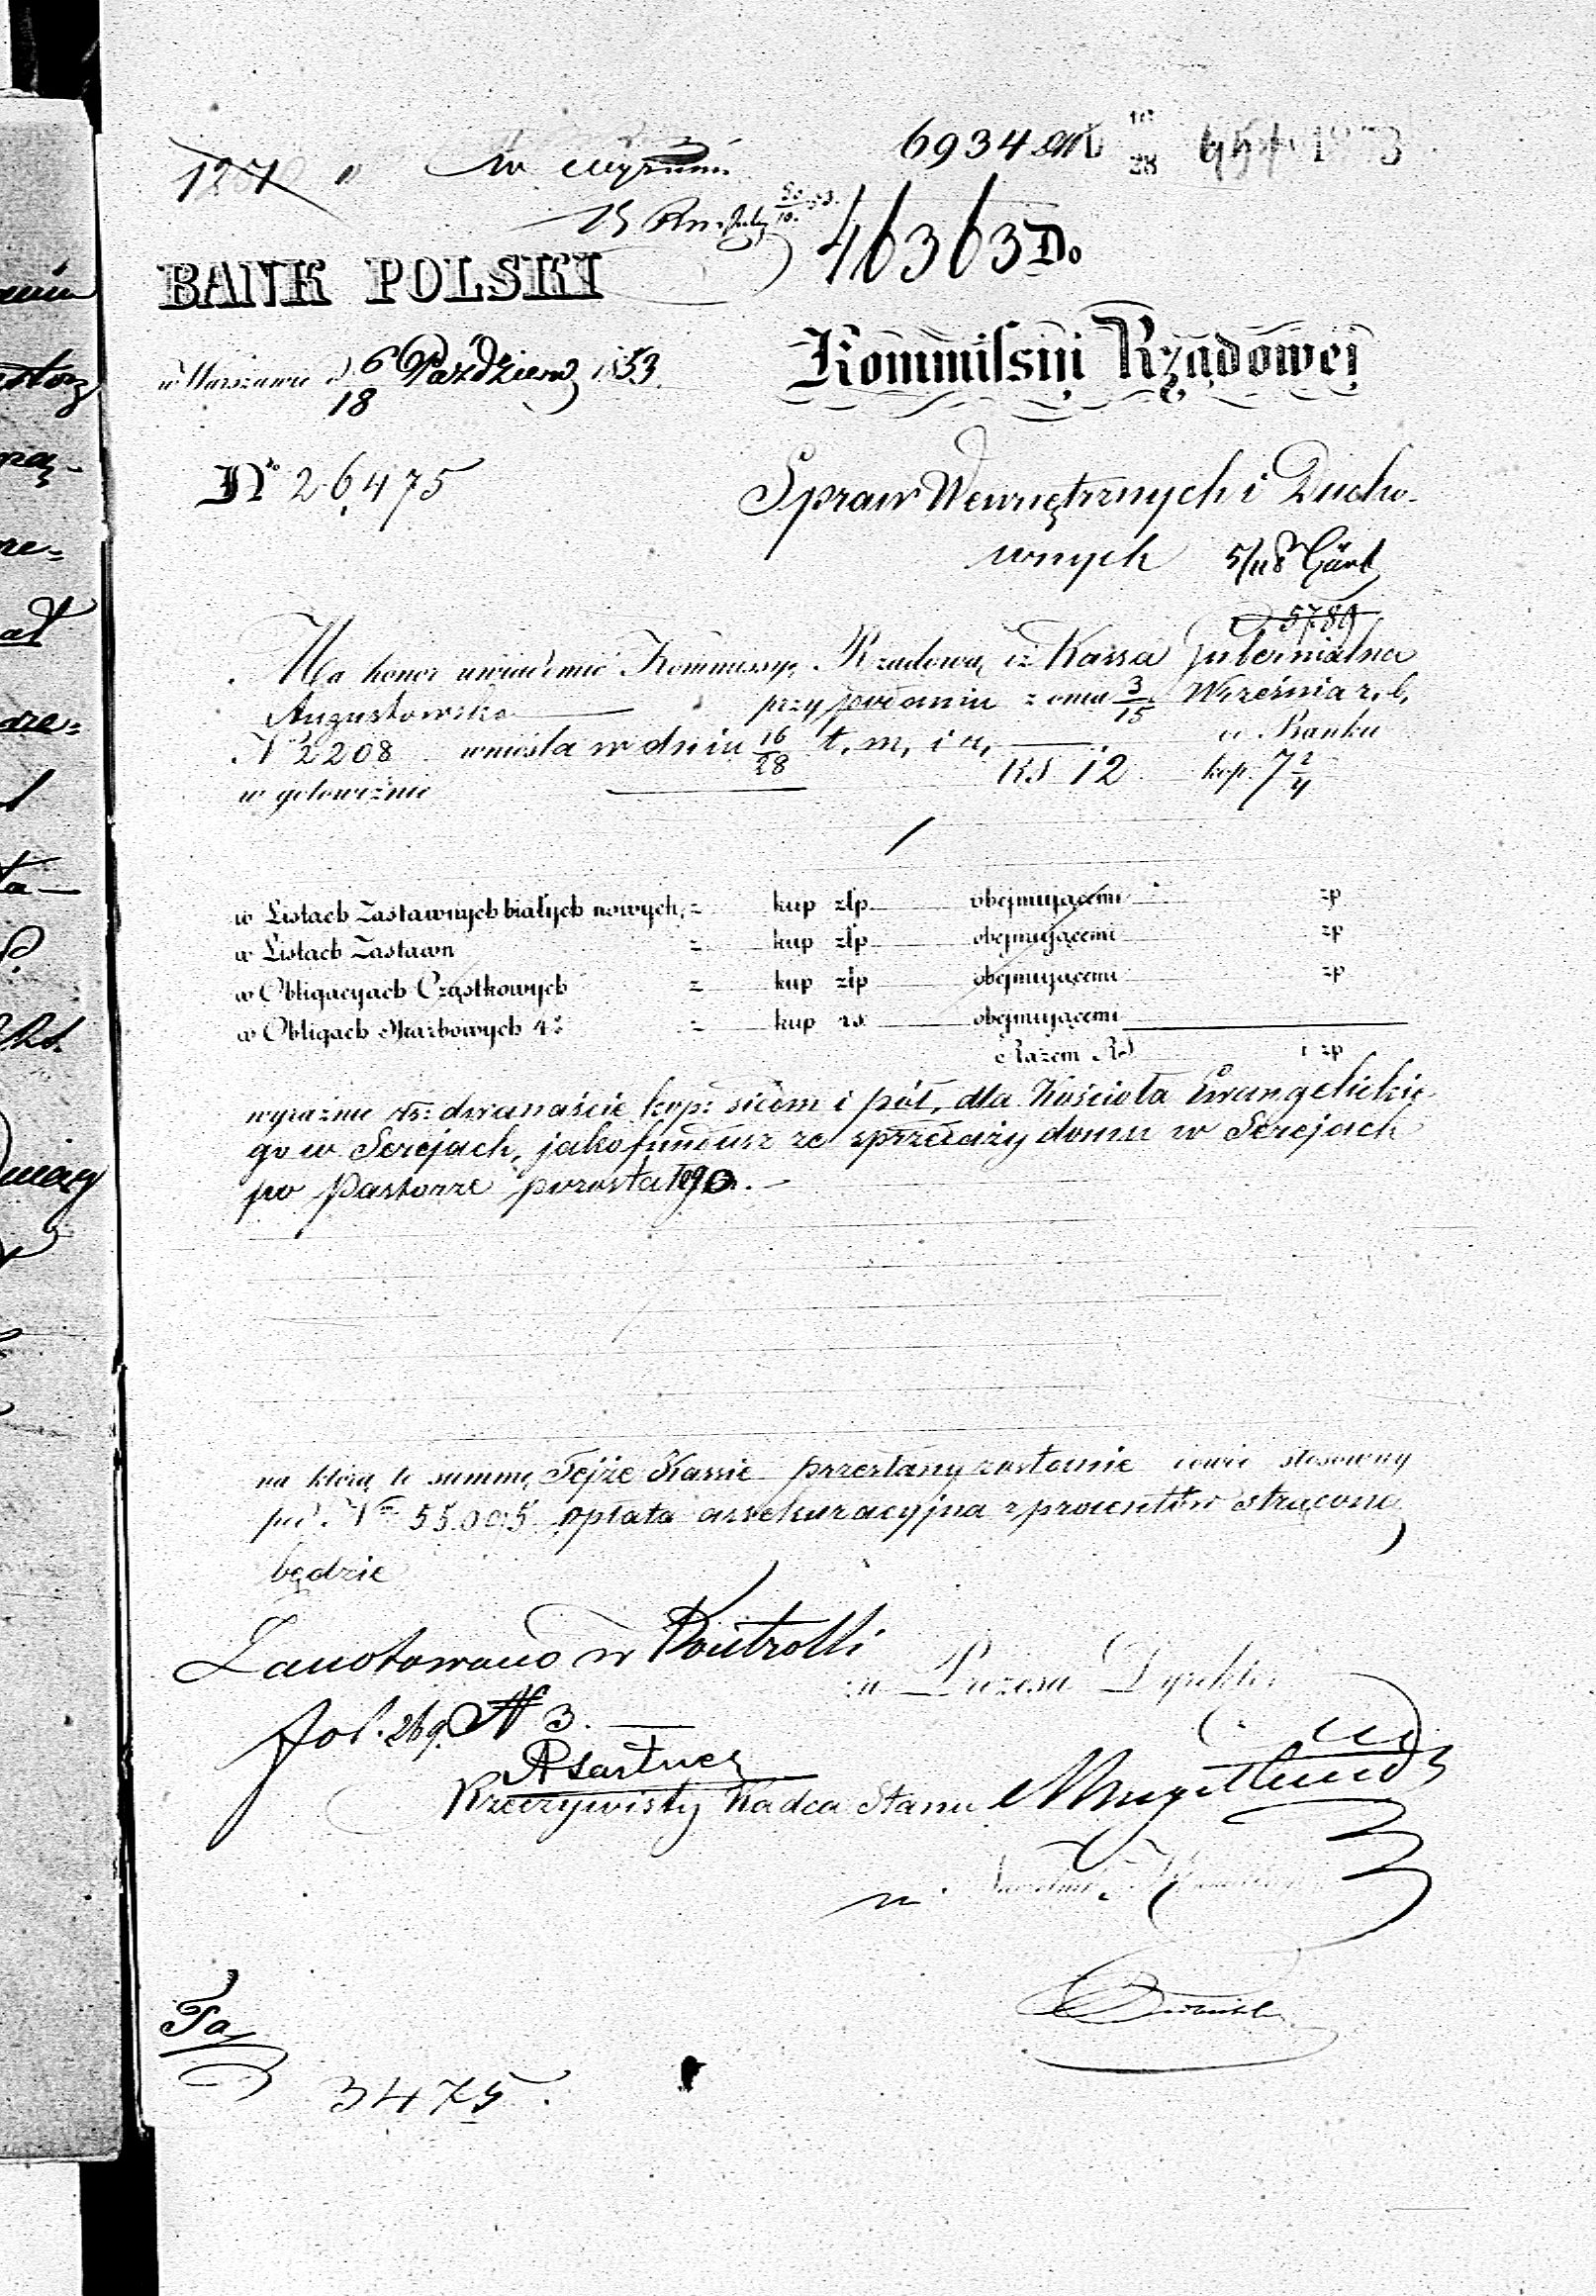 6934
46363 Do
BANK POLSKI
w Warszawie d 6/18 Październ 1853.
Kommissyi Rządowej
No 26475
Spraw Wewnętrznych i Ducho-
wnych
5789
Ma honor uwiadomić Kommissyę Rządową iż Kassa Gubernialna
Augustowska przy podaniu z dnia 3/15 Września r. b.
N 2208 wniosła w dniu 16/28 t. m. i r. w Banku
w gotowiźnie RS 12 kop. 7 2/4
w Listach Zastawnych białych nowych, z kup złp obejmującemi zp
w Listach Zastawn z kup złp obejmującemi zp
w Obligacyach Cząstkowych z kup złp obejmującemi zp
w Obligach Skarbowych 4% z kup rs. obejmującemi
Razem RS i zp
wyraźnie rs: dwanaście kop: siedm i pół, dla Kościoła Ewangelickie-
go w Serejach, jako fundusz ze sprzedaży domu w Serejach
po Pastorze pozostałego.
na którą to summę Tejże Kassie przesłany zostanie dowód stosowny
pod No 55.005 opłata assekuracyjna z procentów strącona
będzie
Zanotowano w Kontrolli
fol. 269. N 3.
za Prezesa Dyrektor
Rzeczywisty Radca Stanu
Naczelnik Kancellaryi
3475.